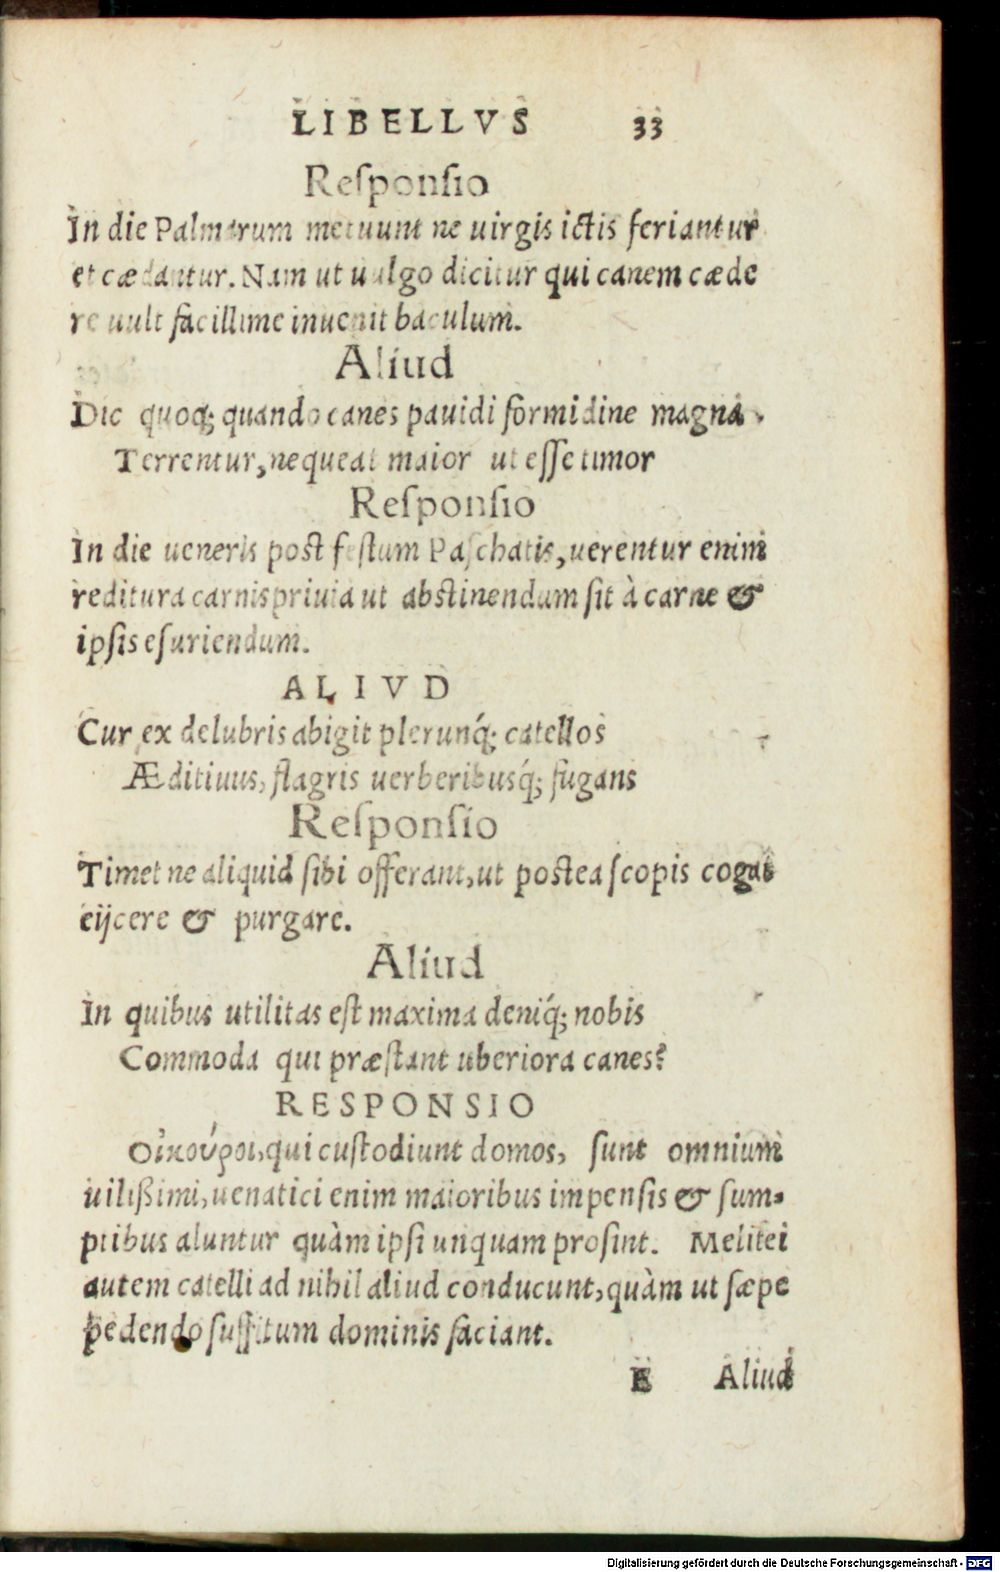 LIBELLVS 33
Reſponſio
In die Palmarum metuunt ne uirgis ictis feriantur
et cædantur. Nam ut uulgo dicitur qui canem cæde
re uult facillime inuenit baculum.
Aliud
Dic quoq; quando canes pauidi formidine magna.
Terrentur, nequeat maior ut eſſe timor
Reſponſio
In die ueneris poſt feſtum Paſchatis, uerentur enim
reditura carnispriuia ut abſtinendum ſit à carne &
ipſis eſuriendum.
ALIVD
Cur ex delubris abigit plerunq́; catellos
Æditiuus, flagris uerberibusq́; fugans
Reſponſio
Timet ne aliquid ſibi offerant, ut poſtea ſcopis cogat̂
eijcere & purgare.
Aliud
In quibus utilitas eſt maxima deniq́; nobis
Commoda qui præſtant uberiora canes?
RESPONSIO
Οἰκούροι, qui cuſtodiunt domos, ſunt omnium
uilißimi, uenatici enim maioribus impenſis & ſum-
ptibus aluntur quàm ipſi unquam proſint. Melitei
autem catelli ad nihil aliud conducunt, quàm ut ſæpe
pedendo ſuffitum dominis faciant.
E Aliud
Digitalisierung gefördert durch die Deutsche Forschungsgemeinschaft - DFG